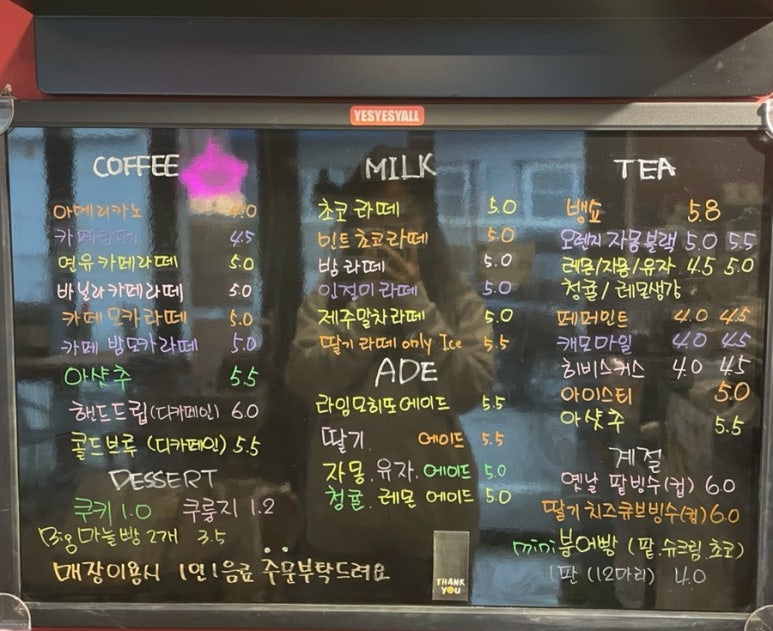 YESYESALL
COFFEE
아메리카노 4.0
카페라떼 4.5
연유카페라떼 5.0
바닐라카페라떼 5.0
카페모카라떼 5.0
카페 밤모카라떼 5.0
아샷추 5.5
핸드드립(디카페인) 6.0
콜드브루 (디카페인) 5.5
DESSERT
쿠키 1.0 쿠룽지 1.2
Big마늘빵 2개 3.5
매장이용시 1인1음료 주문부탁드려요
MILK
초코라떼 5.0
민트초코라떼 5.0
밤라떼 5.0
인절미라떼 5.0
제주말차라떼 5.0
딸기라떼 only Ice 5.5
ADE
라임모히또에이드 5.5
딸기 에이드 5.5
자몽.유자.에이드 5.0
청귤.레몬 에이드 5.0
THANK
YOU
TEA
뱅쇼 5.8
오렌지자몽블랙 5.0 5.5
레몬/자몽/유자 4.5 5.0
청귤/레모생강
페퍼민트 4.0 4.5
캐모마일 4.0 4.5
히비스커스 4.0 4.5
아이스티 5.0
아샷추 5.5
계절
옛날 팥빙수(컵) 6.0
딸기치즈큐브빙수(컵) 6.0
mini붕어빵 (팥.슈크림.초코)
1판 (12마리) 4.0